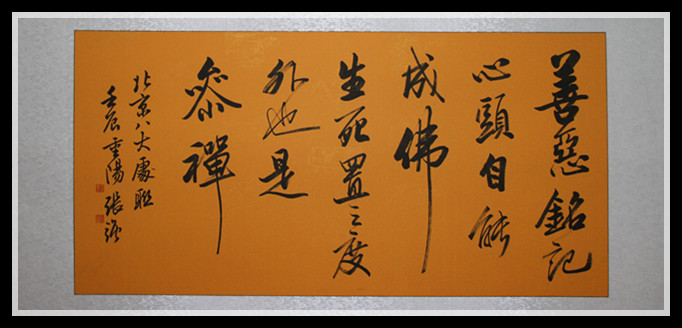 善惡銘記
心頭自能
成佛
生死置之度
外也是
參禪
北京八大處聯
壬辰重陽 張強